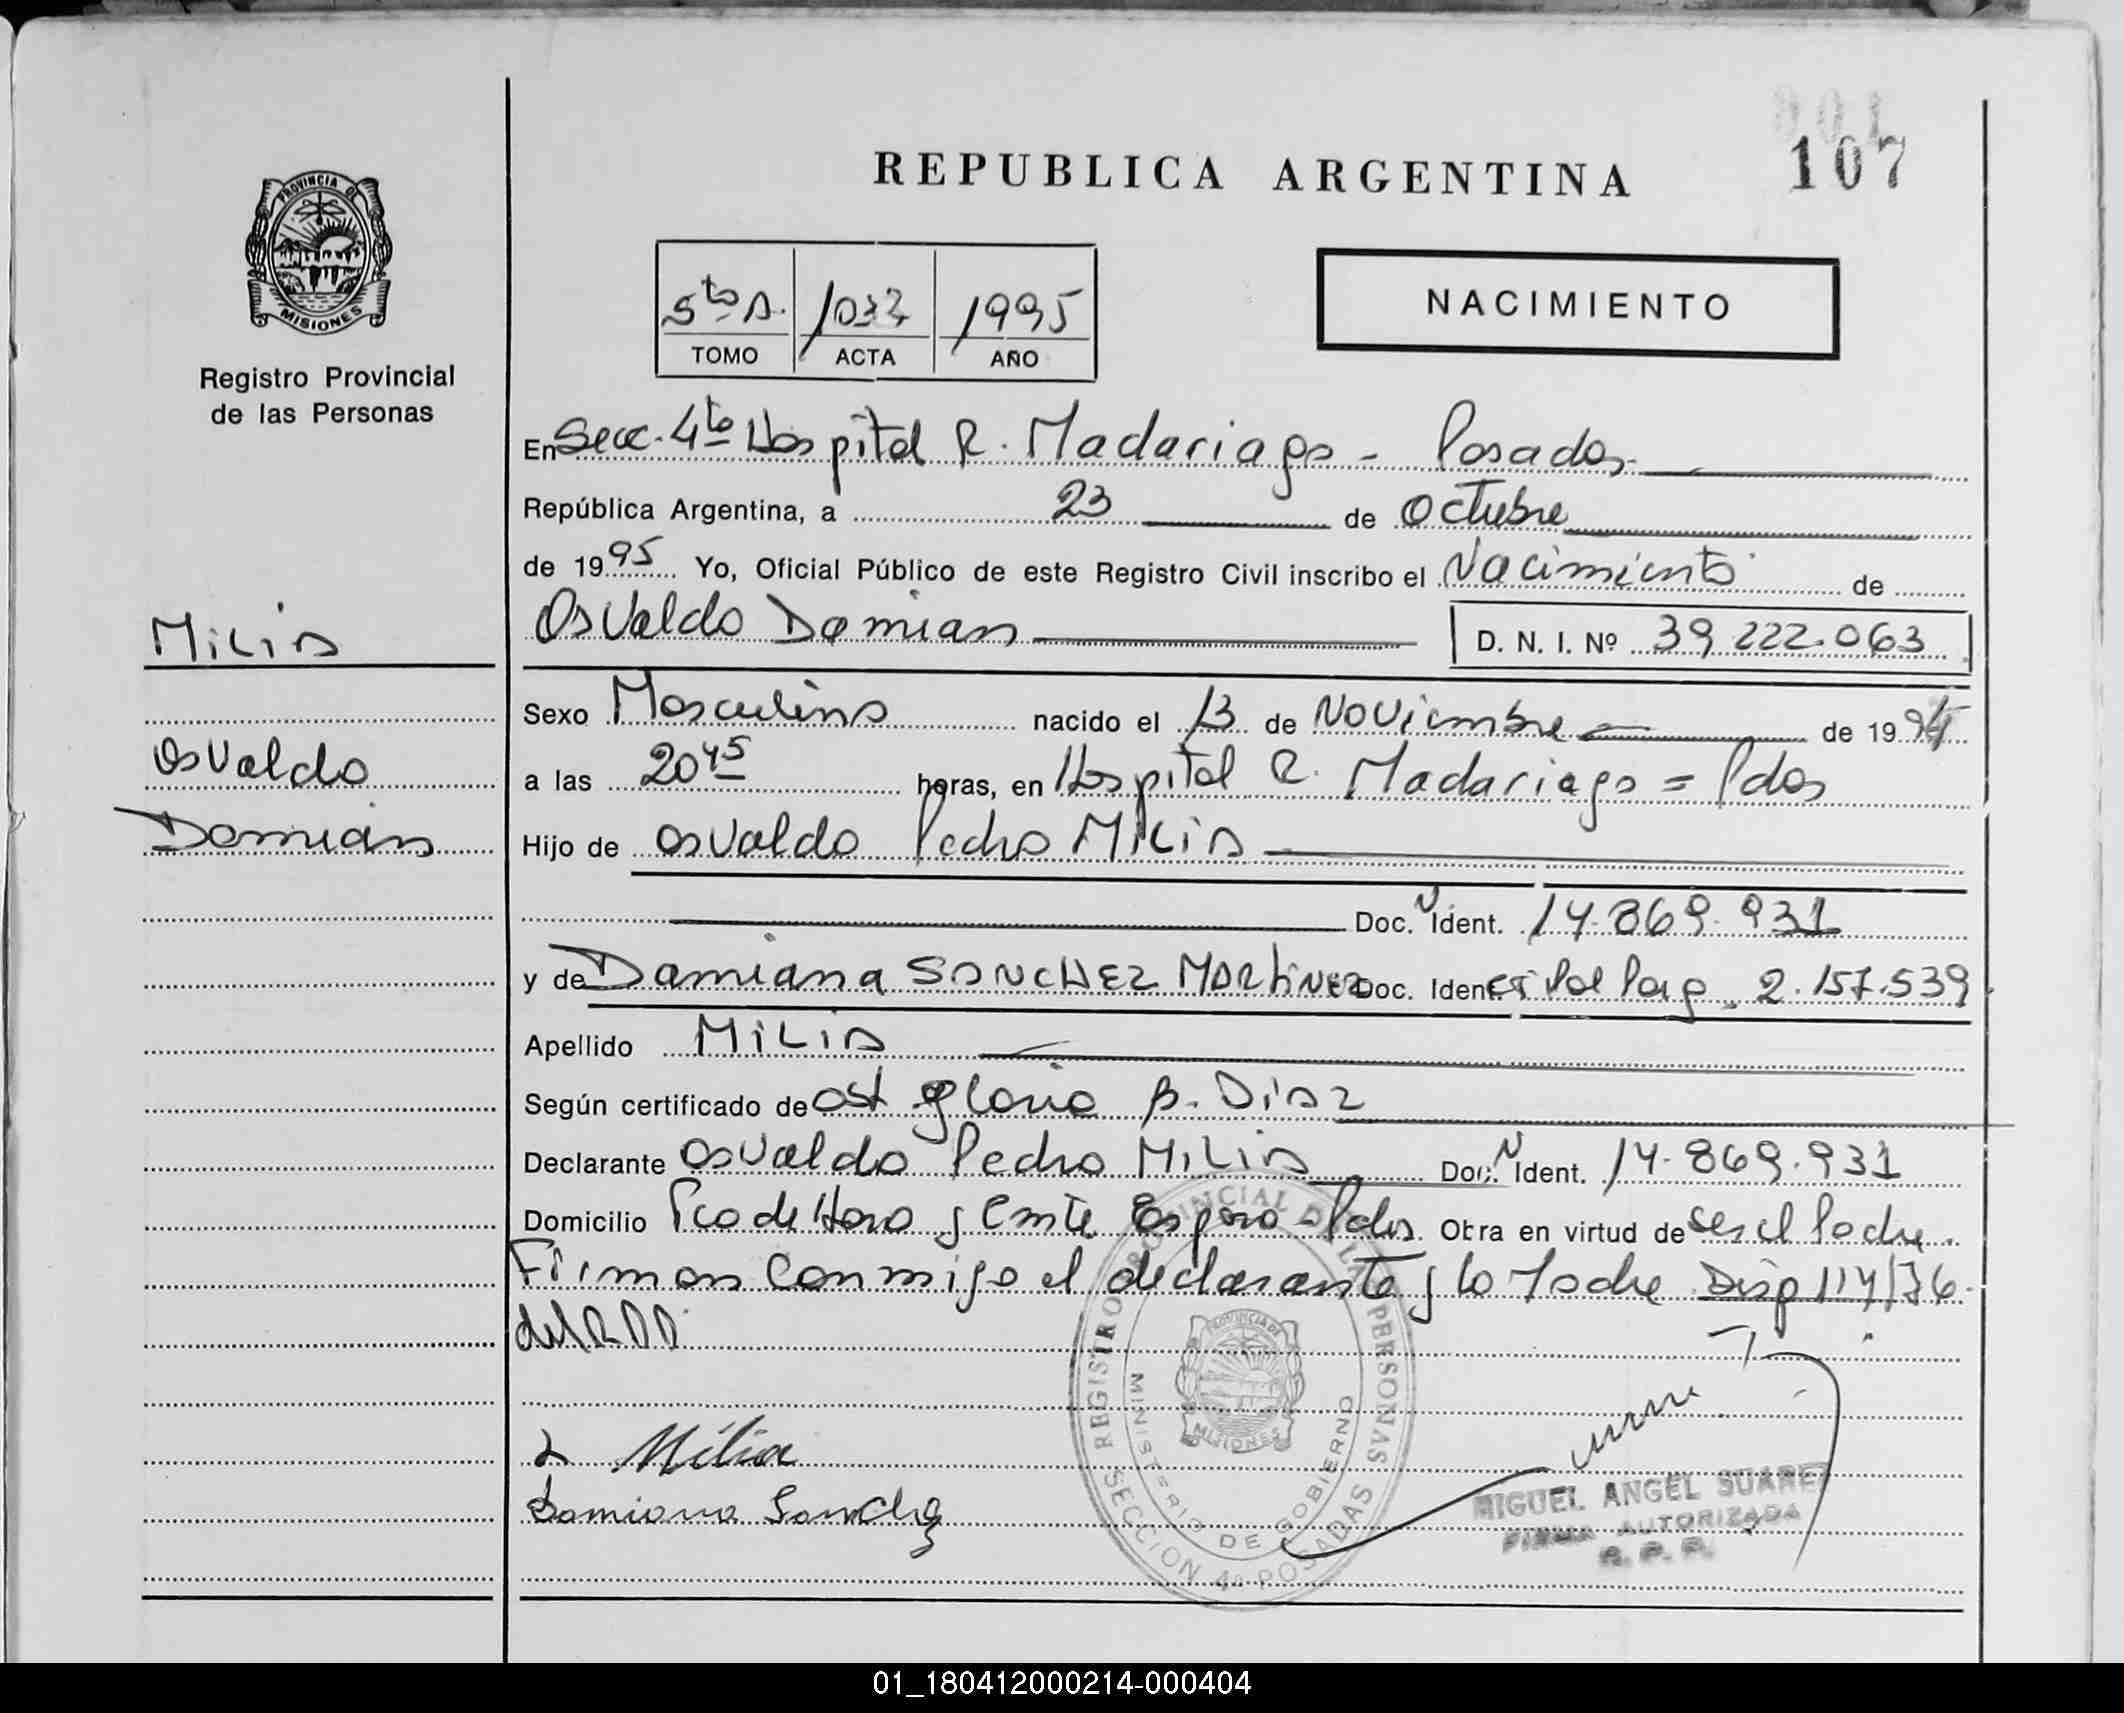 107
REPUBLICA ARGENTINA
PROVINCIA DE
MISIONES
Registro Provincial
de las Personas
5to A. 1033 1995
TOMO ACTA AÑO
NACIMIENTO
En Secc. 4ta Hospital R. Madariaga - Posadas
República Argentina, a 23 de Octubre
de 1995 Yo, Oficial Público de este Registro Civil inscribo el Nacimiento de
Osvaldo Damian D. N. I. Nº 39 222.063
MILIA
Osvaldo
Damian
Sexo Masculino nacido el 13 de Noviembre de 1994
a las 20 45 horas, en Hospital R. Madariaga = Pdas
Hijo de Osvaldo Pedro MILIA
Doc. N Ident. 14.869.931
y de Damiana SANCHEZ MARTINEZ Doc. Ident. Pol Parag. 2.157.539
Apellido MILIA
Según certificado de Ost Gloria B. Diaz
Declarante Osvaldo Pedro MILIA Doc. N Ident. 14.869.931
Domicilio Pco de Haro y Cmte Espora - Pdas Obra en virtud de ser el Padre.
Firman conmigo el declarante y la Madre Disp 114/76
del R.P.P.
Milia
Damiana Sanchez
REGISTRO PROVINCIAL DE LAS PERSONAS
MINISTERIO DE GOBIERNO
PROVINCIA DE
MISIONES
SECCION 4ª POSADAS
MIGUEL ANGEL SUAREZ
FIRMA AUTORIZADA
R. P. P.
01_180412000214-000404